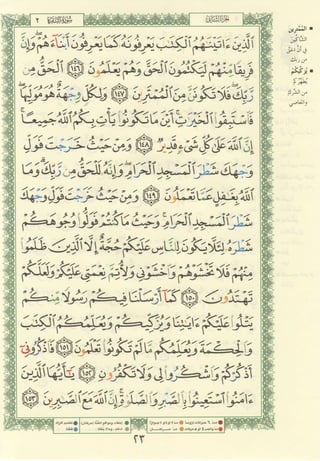 سُورَةُ الْبَقَرَةِ ٢
الَّذِينَ آتَيْنَاهُمُ الْكِتَابَ يَعْرِفُونَهُ كَمَا يَعْرِفُونَ أَبْنَاءَهُمْ وَإِنَّ
فَرِيقًا مِنْهُمْ لَيَكْتُمُونَ الْحَقَّ وَهُمْ يَعْلَمُونَ ١٤٦ الْحَقُّ مِنْ
رَبِّكَ فَلَا تَكُونَنَّ مِنَ الْمُمْتَرِينَ ١٤٧ وَلِكُلٍّ وِجْهَةٌ هُوَ مُوَلِّيهَا
فَاسْتَبِقُوا الْخَيْرَاتِ أَيْنَ مَا تَكُونُوا يَأْتِ بِكُمُ اللَّهُ جَمِيعًا
إِنَّ اللَّهَ عَلَى كُلِّ شَيْءٍ قَدِيرٌ ١٤٨ وَمِنْ حَيْثُ خَرَجْتَ فَوَلِّ
وَجْهَكَ شَطْرَ الْمَسْجِدِ الْحَرَامِ وَإِنَّهُ لَلْحَقُّ مِنْ رَبِّكَ وَمَا
اللَّهُ بِغَافِلٍ عَمَّا تَعْمَلُونَ ١٤٩ وَمِنْ حَيْثُ خَرَجْتَ فَوَلِّ وَجْهَكَ
شَطْرَ الْمَسْجِدِ الْحَرَامِ وَحَيْثُ مَا كُنْتُمْ فَوَلُّوا وُجُوهَكُمْ
شَطْرَهُ لِئَلَّا يَكُونَ لِلنَّاسِ عَلَيْكُمْ حُجَّةٌ إِلَّا الَّذِينَ ظَلَمُوا
مِنْهُمْ فَلَا تَخْشَوْهُمْ وَاخْشَوْنِي وَلِأُتِمَّ نِعْمَتِي عَلَيْكُمْ وَلَعَلَّكُمْ
تَهْتَدُونَ ١٥٠ كَمَا أَرْسَلْنَا فِيكُمْ رَسُولًا مِنْكُمْ
يَتْلُو عَلَيْكُمْ آيَاتِنَا وَيُزَكِّيكُمْ وَيُعَلِّمُكُمُ الْكِتَابَ
وَالْحِكْمَةَ وَيُعَلِّمُكُمْ مَا لَمْ تَكُونُوا تَعْلَمُونَ ١٥١ فَاذْكُرُونِي
أَذْكُرْكُمْ وَاشْكُرُوا لِي وَلَا تَكْفُرُونِ ١٥٢ يَا أَيُّهَا الَّذِينَ
آمَنُوا اسْتَعِينُوا بِالصَّبْرِ وَالصَّلَاةِ إِنَّ اللَّهَ مَعَ الصَّابِرِينَ ١٥٣
٢٣